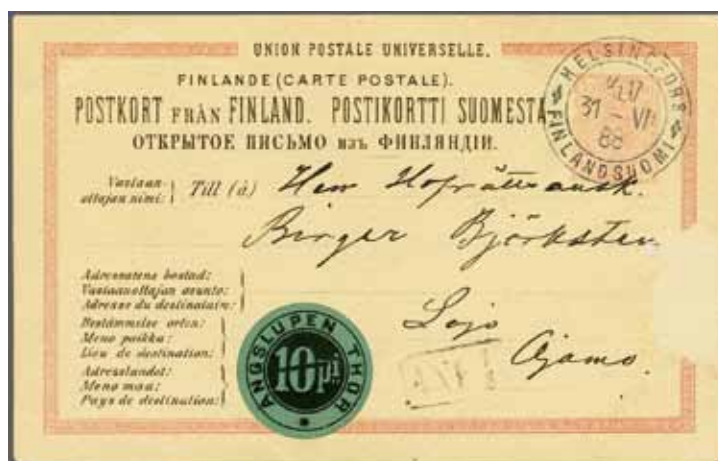 UNION POSTALE UNIVERSELLE.
FINLANDE (CARTE POSTALE).
POSTKORT FRÅN FINLAND. POSTIKORTTI SUOMESTA
ОТКРЫТОЕ ПИСЬМО изъ ФИНЛЯНДІИ.
HELSINGFORS
31 VII
88
FINLAND SUOMI
Vastaan-
ottajan nimi:
Till (à) Herr Hofrättsausk.
Birger Björksten
Adressatens bostad:
Vastaanottajan asunto:
Adresse du destinataire:
Bestämmelse orten:
Meno paikka:
Lieu de destination:
Adresslandet:
Meno maa:
Pays de destination:
Lojo
Ojamo.
ÅNGSLUPEN THOR
10 pi
ANK